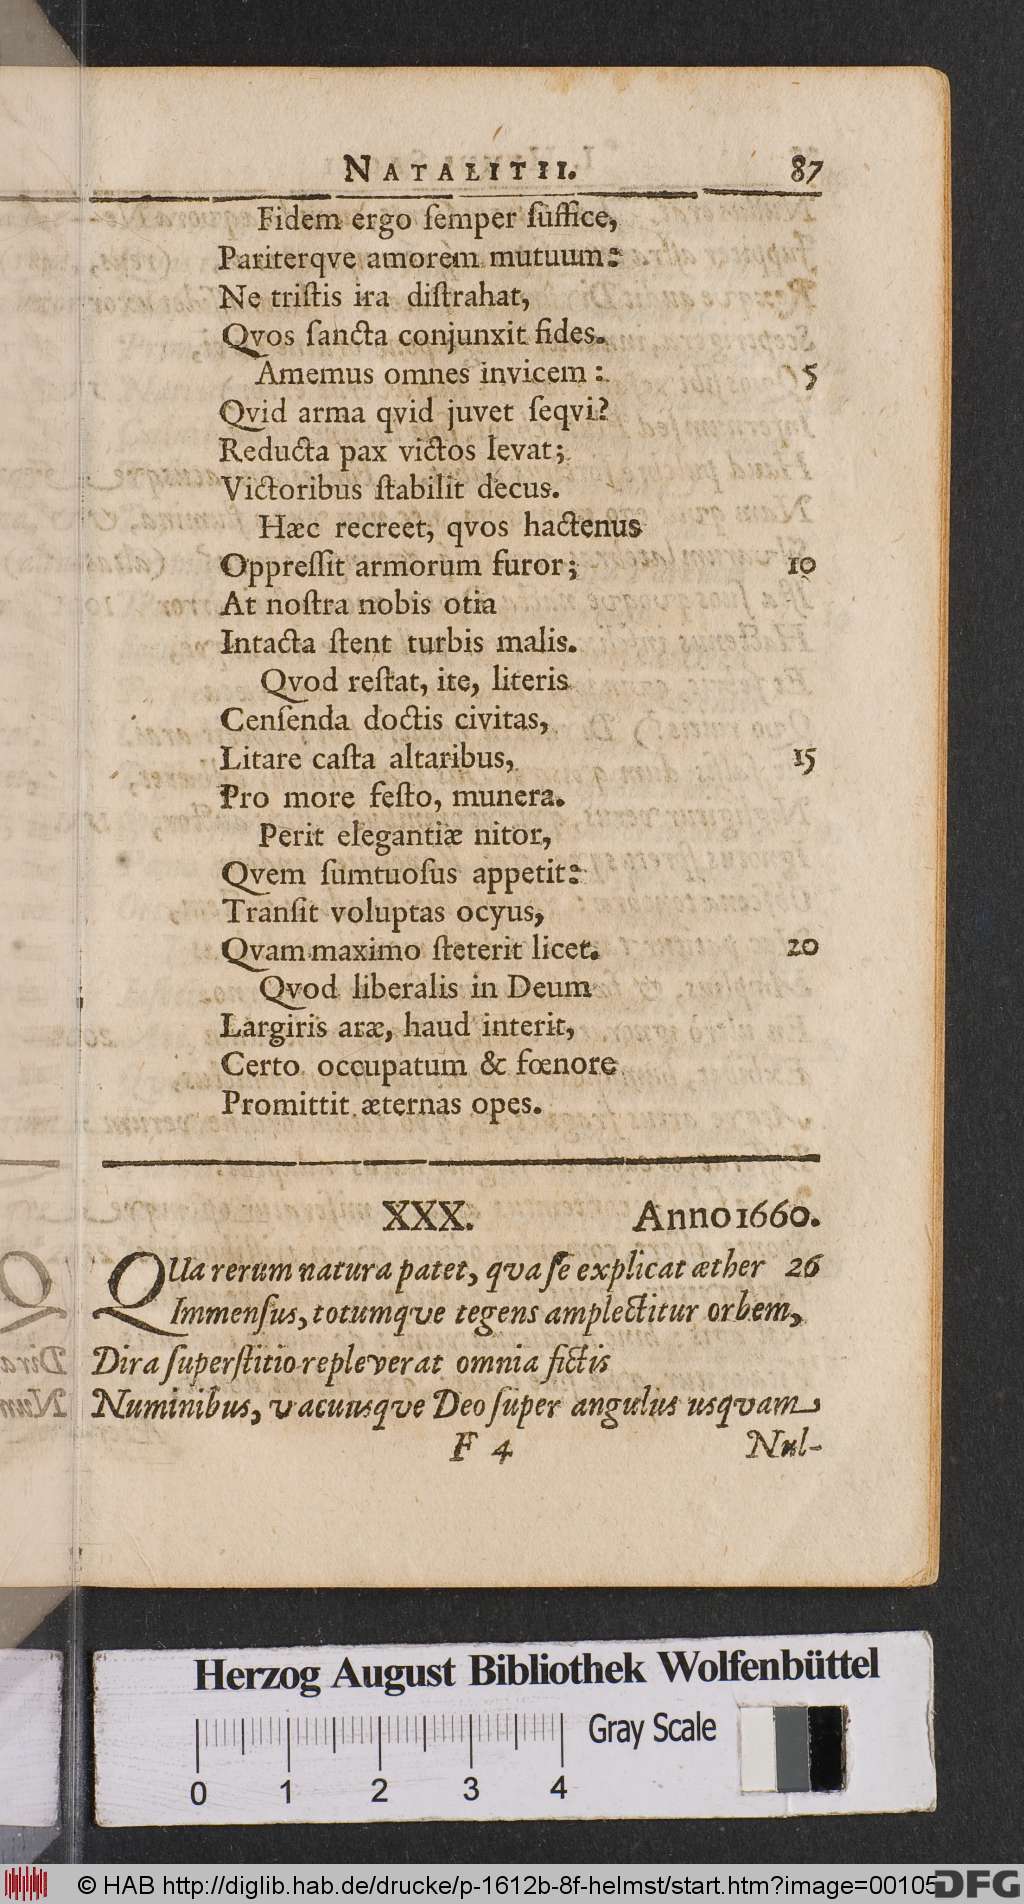 NATALITII. 87
Fidem ergo ſemper ſuffice,
Pariterqve amorem mutuum:
Ne triſtis ira diſtrahat,
Qvos ſancta conjunxit fides.
Amemus omnes invicem: 5
Qvid arma qvid juvet ſeqvi?
Reducta pax victos levat;
Victoribus ſtabilit decus.
Hæc recreet, qvos hactenus
Oppreſſit armorum furor; 10
At noſtra nobis otia
Intacta ſtent turbis malis.
Qvod reſtat, ite, literis
Cenſenda doctis civitas,
Litare caſta altaribus, 15
Pro more feſto, munera.
Perit elegantiæ nitor,
Qvem ſumtuoſus appetit:
Tranſit voluptas ocyus,
Qvam maximo ſteterit licet. 20
Qvod liberalis in Deum
Largiris aræ, haud interit,
Certo occupatum & fœnore
Promittit æternas opes.
XXX. Anno 1660.
QUa rerum natura patet, qva ſe explicat æther 26
Immenſus, totumqve tegens amplectitur orbem,
Dira ſuperſtitio repleverat omnia fictis
Numinibus, vacuusqve Deo ſuper angulus usqvam
F 4 Nul-
Herzog August Bibliothek Wolfenbüttel
Gray Scale
0 1 2 3 4
© HAB http://diglib.hab.de/drucke/p-1612b-8f-helmst/start.htm?image=00105
DFG